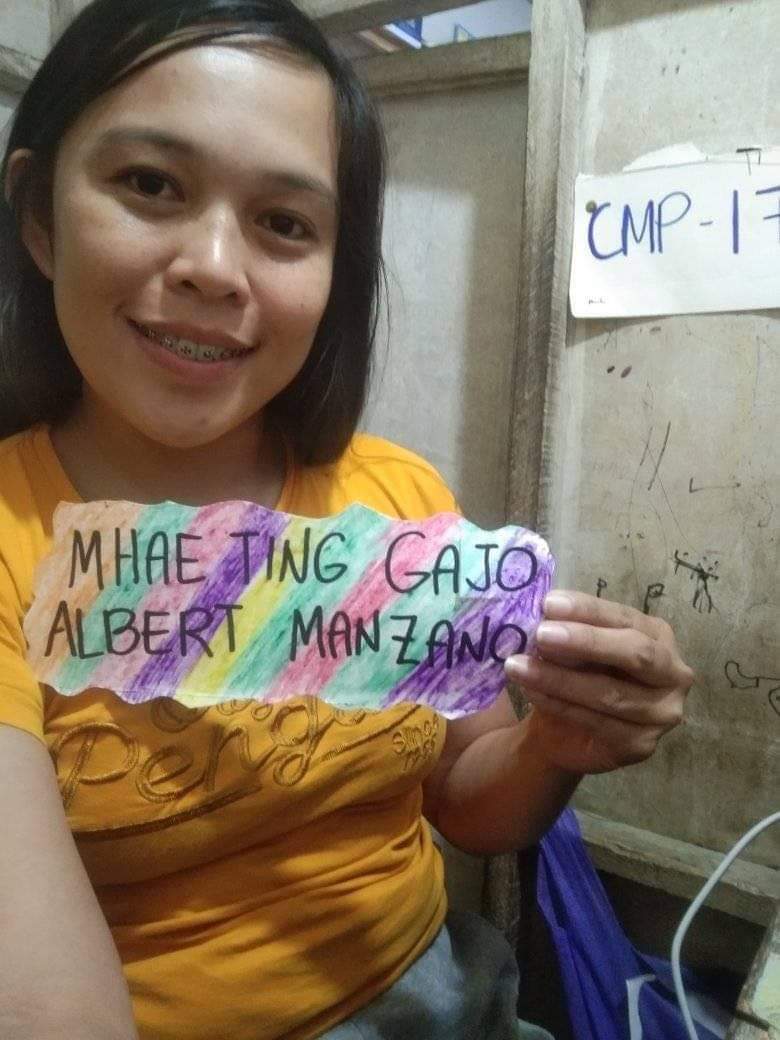 CMP-17
MHAE TING GAJO
ALBERT MANZANO
Peng